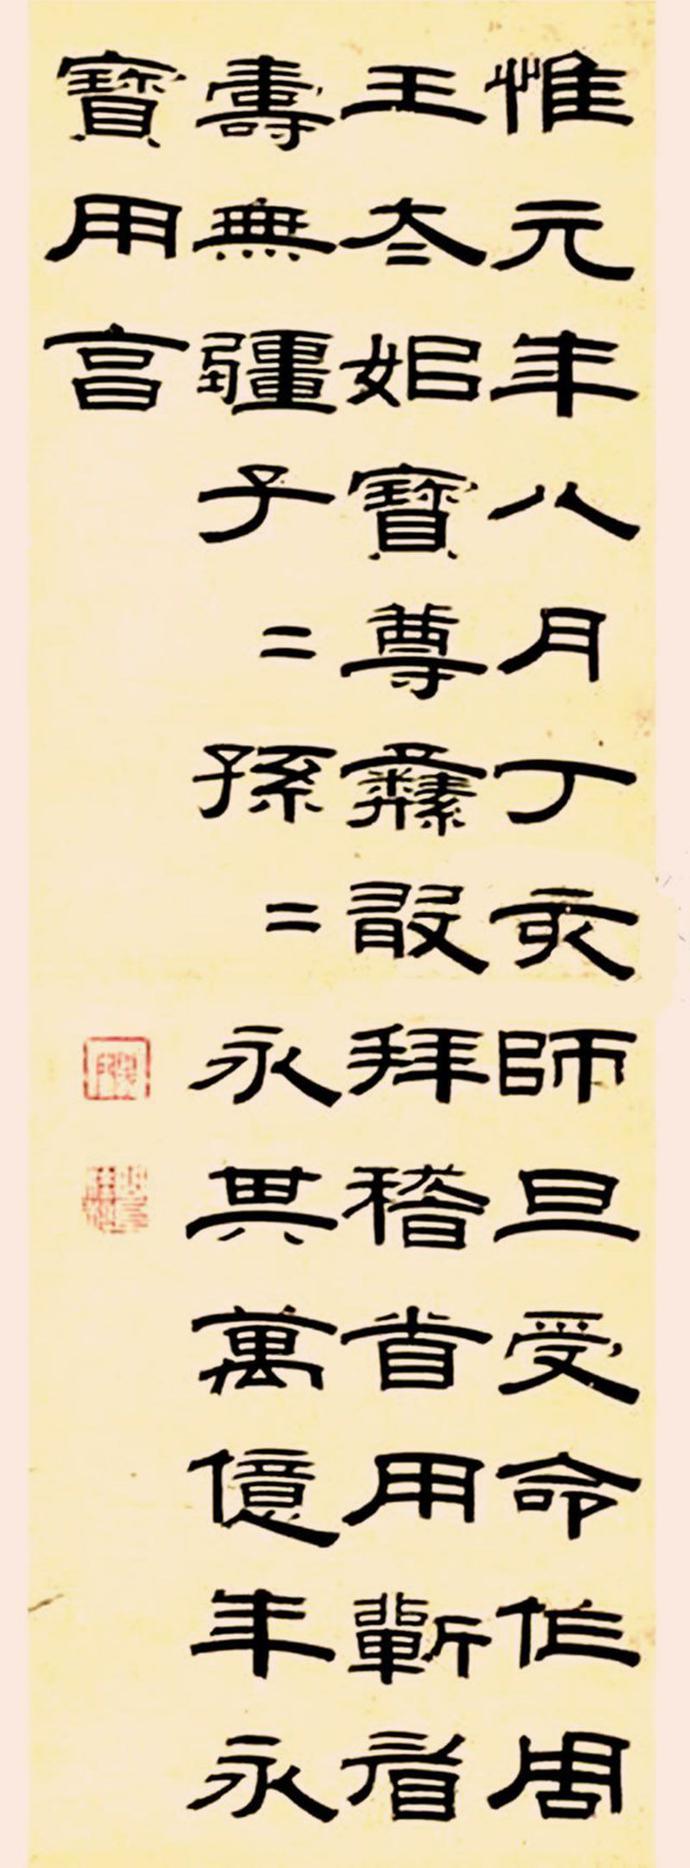 惟元年八月丁亥師旦受命作周
王大姒寶尊彝敢拜稽首用蘄眉
壽無疆子二孫二永其萬億年永
寶用亯